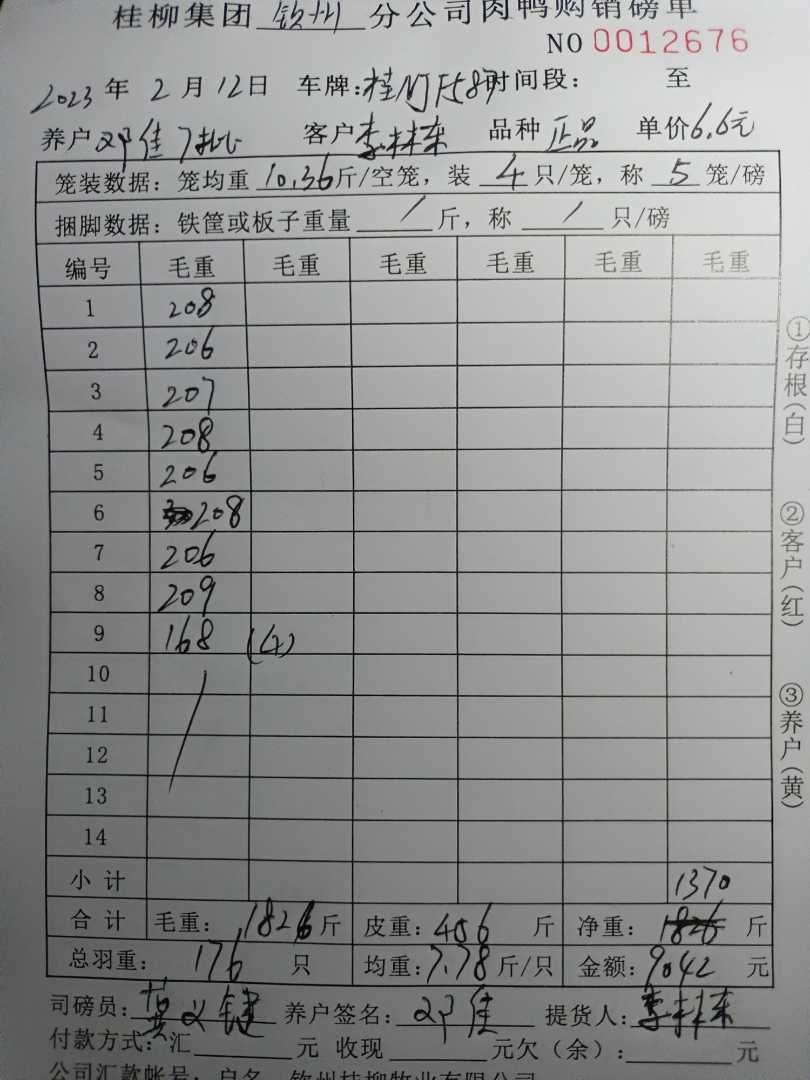 桂柳集团 钦州 分公司肉鸭购销磅单
NO 0012676
2023 年 2 月 12 日 车牌: 时间段: 至
养户 邓佳 7批 客户 李林东 品种 正品 单价 6.6元
笼装数据: 笼均重 10.36 斤/空笼, 装 4 只/笼, 称 5 笼/磅
捆脚数据: 铁筐或板子重量 / 斤, 称 / 只/磅
编号 毛重 毛重 毛重 毛重 毛重 毛重
1 208
2 206
3 207
4 208
5 206
6 208
7 206
8 209
9 168 (4)
10
11
12
13
14
小计 1370
合计 毛重: 1826 斤 皮重: 456 斤 净重: 1826 斤
总羽重: 176 只 均重: 7.78 斤/只 金额: 9042 元
司磅员: 养户签名: 邓佳 提货人: 李林东
付款方式: 汇 元 收现 元欠(余): 元
公司汇款帐号: 户名 钦州桂柳牧业有限公司
①存根(白)
②客户(红)
③养户(黄)